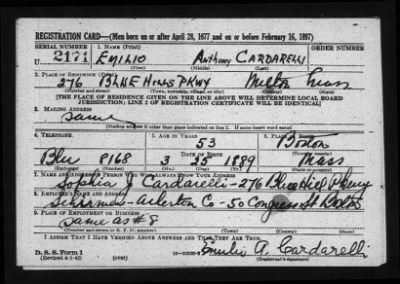 REGISTRATION CARD—(Men born on or after April 28, 1877 and on or before February 16, 1897)
SERIAL NUMBER 1. NAME (Print) ORDER NUMBER
U 2171 EMILIO Anthony CARDARELLI
(First) (Middle) (Last)
2. PLACE OF RESIDENCE (Print)
276 BLUE HILLS PKWY Milton Mass
(Number and street) (Town, township, village, or city) (County) (State)
[THE PLACE OF RESIDENCE GIVEN ON THE LINE ABOVE WILL DETERMINE LOCAL BOARD
JURISDICTION; LINE 2 OF REGISTRATION CERTIFICATE WILL BE IDENTICAL]
3. MAILING ADDRESS
Same
[Mailing address if other than place indicated on line 2. If same insert word same]
4. TELEPHONE 5. AGE IN YEARS 6. PLACE OF BIRTH
53 Boston
DATE OF BIRTH
Blu 8168 3 25 1889 Mass
7. NAME AND ADDRESS OF PERSON WHO WILL ALWAYS KNOW YOUR ADDRESS
Sophia J Cardarelli - 276 Blue Hill Pkwy
8. EMPLOYER'S NAME AND ADDRESS
- 50 Congress St Boston
9. PLACE OF EMPLOYMENT OR BUSINESS
Same as #8
I AFFIRM THAT I HAVE VERIFIED ABOVE ANSWERS AND THAT THEY ARE TRUE.
D. S. S. Form 1
(Revised 4-1-42)
Emilio A. Cardarelli
(Registrant's signature)